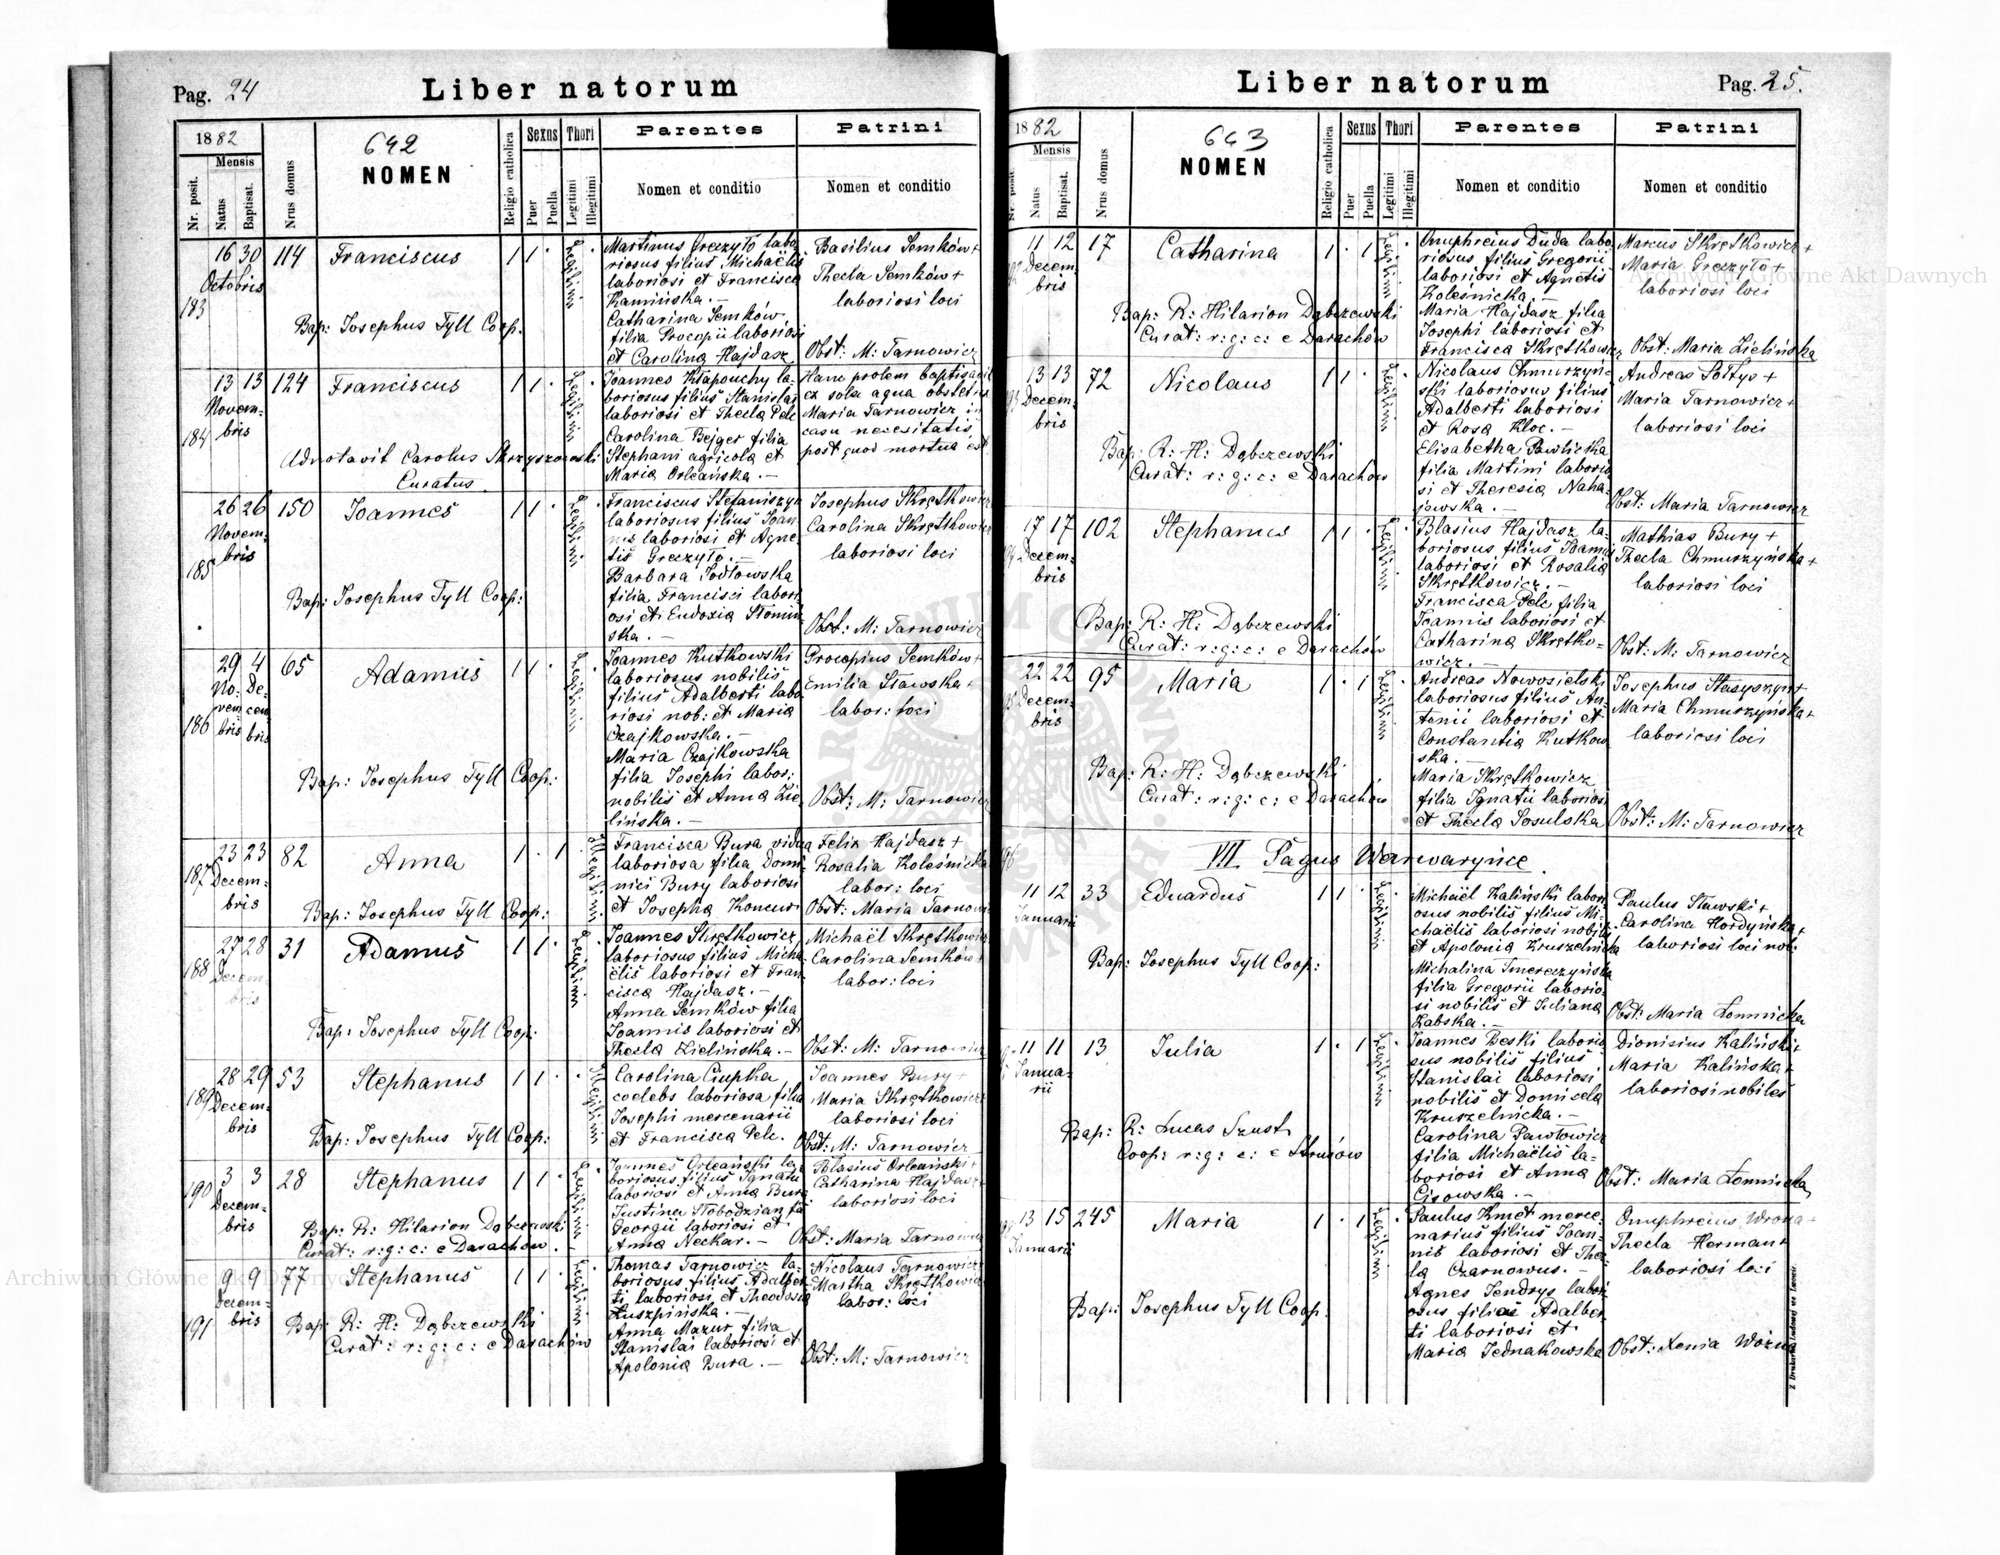 Pag. 24
Liber natorum
1882
Mensis
Nr. posit.
Natus
Baptisat.
Nrus domus
642
NOMEN
Religio catholica
Sexus
Puer
Puella
Thori
Legitimi
Illegitimi
Parentes
Nomen et conditio
Patrini
Nomen et conditio
183
16 30
Octobris
114
Franciscus
1 1 ·
Legitimi
Bap: Josephus Tyll Coop.
Martinus Greczyło labo-
riosus filius Michaëlis
laboriosi et Francisca
Kamińska. –
Catharina Semków
filia Procopii laboriosi
et Carolina Hajdasz
Basilius Semków +
Thecla Semków +
laboriosi loci
Obst: M: Tarnowicz
184
13 13
Novem-
bris
124
Franciscus
1 1 ·
Legitimi
Adnotavit Carolus Skrzyszowski
Curatus
Joannes Kłapouchy la-
boriosus filius Stanislai
laboriosi et Thecla Pelc
Carolina Bejger filia
Stephani agricola et
Maria Orleańska. –
Hanc prolem baptisavit
ex sola aqua obstetrix
Maria Tarnowicz in
casu necesitatis
post quod mortua est
185
26 26
Novem-
bris
150
Joannes
1 1 ·
Legitimi
Bap: Josephus Tyll Coop:
Franciscus Stefaniszyn
laboriosus filius Joan-
nis laboriosi et Agne-
tis Greczyło. –
Barbara Sodłowska
filia Francisci labori
osi et Eudoxia Słomin-
ska. –
Josephus Skrętkowicz
Carolina Skrętkowicz
laboriosi loci
Obst: M: Tarnowicz
186
29 4
No- De-
vem cem
bris bris
65
Adamus
1 1 ·
Legitimi
Bap: Josephus Tyll Coop:
Joannes Kutkowski
laboriosus nobilis
filius Adalberti labo
riosi nob: et Maria
Czajkowska. –
Maria Czajkowska
filia Josephi labor:
nobilis et Anna Zie-
lińska. –
Procopius Semków +
Emilia Stawska +
labor: loci
Obst: M: Tarnowicz
187
23 23
Decem-
bris
82
Anna
1 · 1
Illegitimi
Bap: Josephus Tyll Coop:
Francisca Bura vidua
laboriosa filia Domi-
nici Bury laboriosi
et Josepha Koncur
Felix Hajdasz +
Rosalia Koleśnicka
labor: loci
Obst: Maria Tarnowicz
188
27 28
Decem-
bris
31
Adamus
1 1 ·
Legitimi
Bap: Josephus Tyll Coop:
Joannes Skrętkowicz
laboriosus filius Micha-
ëlis laboriosi et Fran
cisca Hajdasz. –
Anna Semków filia
Joannis laboriosi et
Thecla Zielińska. –
Michaël Skrętkowicz
Carolina Semków +
labor: loci
Obst: M: Tarnowicz
189
28 29
Decem-
bris
53
Stephanus
1 1 ·
Illegitimi
Bap: Josephus Tyll Coop:
Carolina Ciupka
coelebs laboriosa filia
Josephi mercenarii
et Francisca Pelc.
Joannes Bury +
Maria Skrętkowicz
laboriosi loci
Obst: M: Tarnowicz
190
3 3
Decem-
bris
28
Stephanus
1 1 ·
Legitimi
Bap: R: Hilarion Dąbczewski
Curat: r: g: c: e Darachów.
Joannes Orleański la-
boriosus filius Ignatii
laboriosi et Anna Bura
Justina Słobodzian fa
Georgii laboriosi et
Anna Neckar. –
Blasius Orleański +
Catharina Hajdasz
laboriosi loci
Obst: Maria Tarnowicz
191
9 9
Decem-
bris
77
Stephanus
1 1 ·
Legitimi
Bap: R: H: Dąbczewski
Curat: r: g: c: e Darachów
Thomas Tarnowicz la-
boriosus filius Adalber
ti laboriosi et Theodosia
Łuszpińska. –
Anna Mazur filia
Stanislai laboriosi et
Apolonia Bura. –
Nicolaus Tarnowicz
Martha Skrętkowicz
labor: loci
Obst: M: Tarnowicz
Liber natorum
Pag. 25.
1882
Mensis
Nr. posit.
Natus
Baptisat.
Nrus domus
643
NOMEN
Religio catholica
Sexus
Puer
Puella
Thori
Legitimi
Illegitimi
Parentes
Nomen et conditio
Patrini
Nomen et conditio
11 12
Decem-
bris
17
Catharina
1 · 1
Legitimi
Bap: R: Hilarion Dąbczewski
Curat: r: g: c: e Darachów
Onuphreius Duda labo
riosus filius Gregorii
laboriosi et Agnetis
Koleśnicka. –
Maria Hajdasz filia
Josephi laboriosi et
Francisca Skrętkowicz
Marcus Skrętkowicz +
Maria Greczyło +
laboriosi loci
Obst: Maria Zielińska
13 13
Decem-
bris
72
Nicolaus
1 1 ·
Legitimi
Bap: R: H: Dąbczewski
Curat: r: g: c: e Darachów
Nicolaus Chmurzyn-
ski laboriosus filius
Adalberti laboriosi
et Rosa Kloc. –
Elisabetha Pawlicka
filia Martini laborio
si et Theresia Naha-
jowska. –
Andreas Sołtys +
Maria Tarnowicz +
laboriosi loci
Obst: Maria Tarnowicz
17 17
Decem-
bris
102
Stephanus
1 1 ·
Legitimi
Bap: R: H: Dąbczewski
Curat: r: g: c: e Darachów
Blasius Hajdasz la-
boriosus filius Joannis
laboriosi et Rosalia
Skrętkowicz. –
Francisca Pelc filia
Joannis laboriosi et
Catharina Skrętko-
wicz. –
Mathias Bury +
Thecla Chmurzyńska +
laboriosi loci
Obst: M: Tarnowicz
22 22
Decem-
bris
95
Maria
1 · 1
Legitimi
Bap: R: H: Dąbczewski
Curat: r: g: c: e Darachów
Andreas Nowosielski
laboriosus filius An-
tonii laboriosi et
Constantia Kutkow
ska. –
Maria Skrętkowicz
filia Ignatii laboriosi
et Thecla Sosulska
Josephus Stasyszyn +
Maria Chmurzyńska +
laboriosi loci
Obst: M: Tarnowicz
VII. Pagus Warwaryńce.
11 12
Januarii
33
Eduardus
1 1 ·
Legitimi
Bap: Josephus Tyll Coop:
Michaël Kaliński labori
osus nobilis filius Mi-
chaëlis laboriosi nobilis
et Apolonia Kruszelnicka
Michalina Smereczyńska
filia Gregorii laborio-
si nobilis et Juliana
Zabska. –
Paulus Stawski +
Carolina Hordyńska +
laboriosi loci nob:
Obst: Maria Łomnicka
11 11
Janua-
rii
13
Julia
1 · 1
Legitimi
Bap: R: Lucas Szust
Coop: r: g: c: e Strusów
Joannes Beski laborio
sus nobilis filius
Stanislai laboriosi
nobilis et Domicela
Kruszelnicka. –
Carolina Pawłowicz
filia Michaëlis la-
boriosi et Anna
Cisowska. –
Dionisius Kaliński +
Maria Kalińska +
laboriosi nobiles
Obst: Maria Łomnicka
13 15
Januarii
245
Maria
1 · 1
Legitimi
Bap: Josephus Tyll Coop:
Paulus Kmet merce-
narius filius Joan-
nis laboriosi et The-
la Czarnowus. –
Agnes Jendrys labori
osus filias Adalber
ti laboriosi et
Maria Jednakowska
Onuphreius Wrona +
Thecla Herman +
laboriosi loci
Obst: Xenia Woźna
Archiwum Główne Akt Dawnych
Archiwum Główne Akt Dawnych